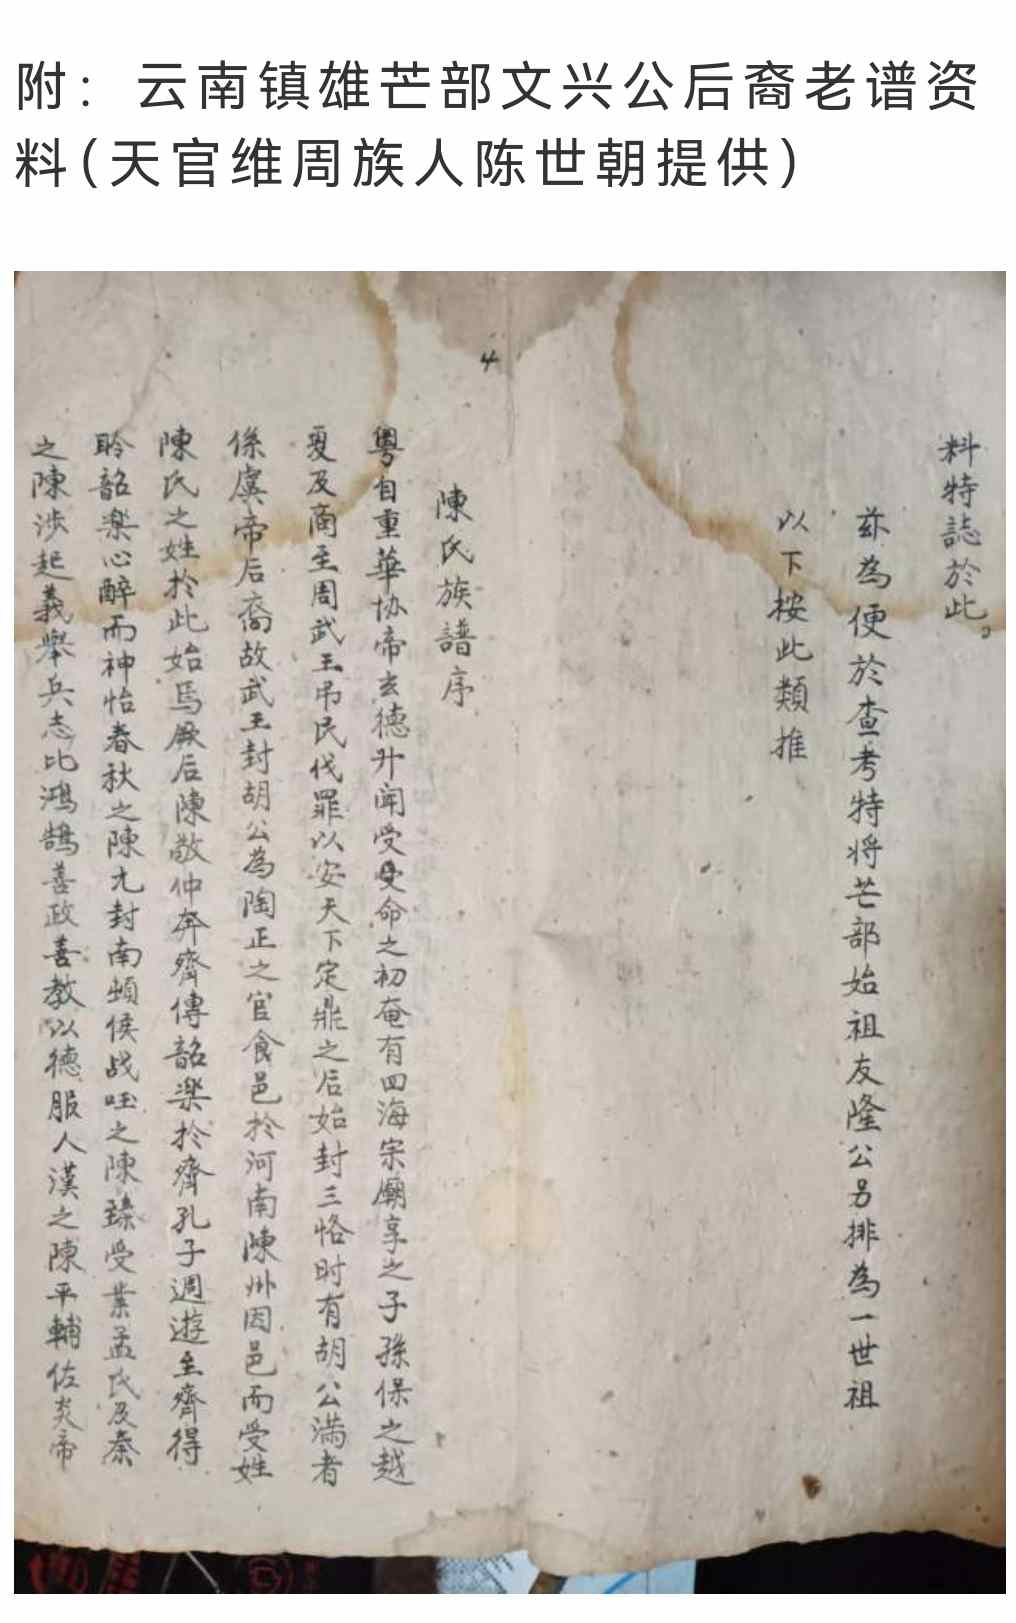 附：云南镇雄芒部文兴公后裔老谱资
料(天官维周族人陈世朝提供)
4
料特誌於此。
茲為便於查考特将芒部始祖友隆公另排為一世祖
以下按此類推
陳氏族譜序
粵自重華协帝玄德升闻受受命之初奄有四海宗廟享之子孫保之越
夏及商至周武王吊民伐罪以安天下定鼎之后始封三恪时有胡公满者
係虞帝后裔故武王封胡公為陶正之官食邑於河南陳州因邑而受姓
陳氏之姓於此始焉厥后陳敬仲奔齊傳韶楽於齊孔子週遊至齊得
聆韶楽心醉而神怡春秋之陳九封南頓侯战国之陳臻受業孟氏及秦
之陳涉起義舉兵志比鴻鵠善政善教以德服人漢之陳平輔佐炎帝